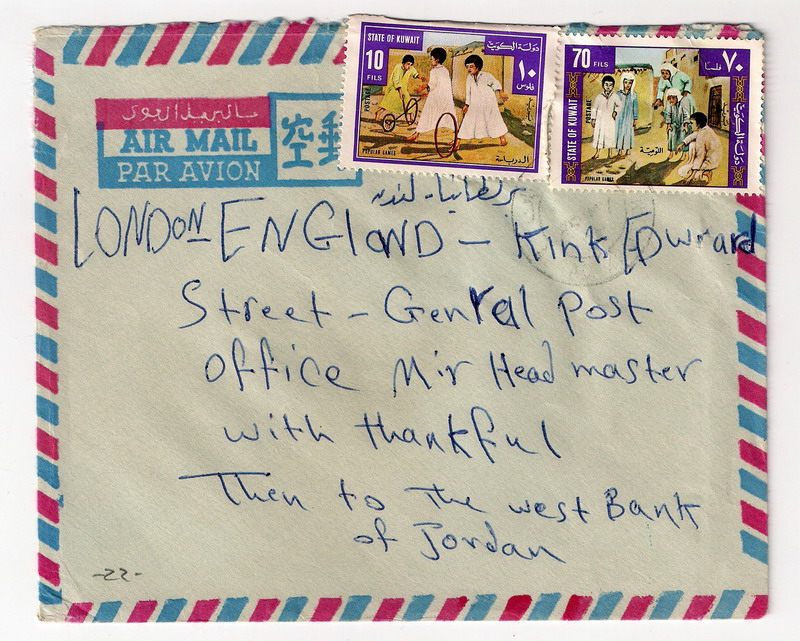 STATE OF KUWAIT
دولة الكويت
10
FILS
١٠
فلوس
POSTAGE
POPULAR GAMES
الدرباحة
70
FILS
٧٠
فلسا
STATE OF KUWAIT
POSTAGE
دولة الكويت
POPULAR GAMES
AIR MAIL
PAR AVION
空郵
لندن
LONDON ENGlAND - Kink EDwrard
Street - Genral post
office Mir Head master
with thankful
Then to The west Bank
of Jordan
-22-